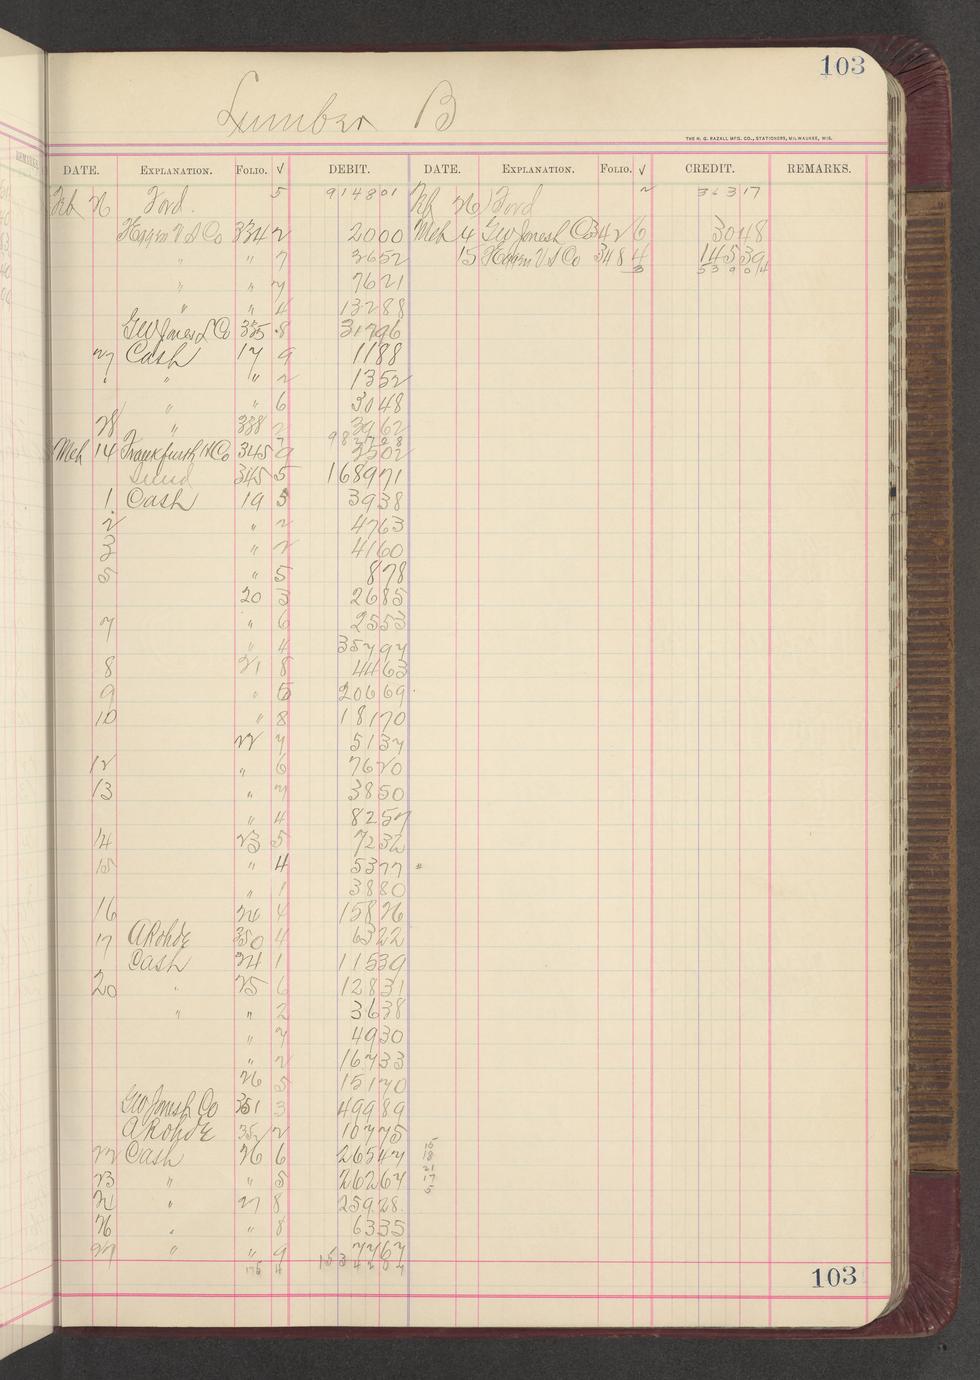 103
Lumber B
THE H. G. RAZALL MFG. CO., STATIONERS, MILWAUKEE, WIS.
DATE. EXPLANATION. FOLIO. √ DEBIT. DATE. EXPLANATION. FOLIO. √ CREDIT. REMARKS.
Feb 26 Ford. 5 914801 Feb 26 Ford 2 36317
334 2 2000 Mch 4 GW Jones L Co 342 6 3048
" " 7 3652 15 348 4 14539
" " 7 7621 3 53904
" " 4 13288
GW Jones L Co 335 8 31796
27 Cash 17 9 1188
" " 2 1352
" " 6 3048
28 " 338 2 3962
982728
Mch 14 Frankfurth H Co 345 9 2502
345 5 168971
1 Cash 19 5 3938
2 " 2 4763
3 " 2 4160
5 " 5 878
20 3 2685
7 " 6 2553
" 4 35797
8 21 8 4463
9 " 5 20669
10 " 8 18170
22 7 5137
12 " 6 7620
13 " 7 3850
" 4 8257
14 23 5 7232
15 " 4 5377
" 1 3880
16 24 4 15826
17 A Rohde 350 4 6322
Cash 24 1 11539
20 " 25 6 12831
" " 2 3638
" 7 4930
" 2 16733
26 5 15170
GW Jones L Co 351 3 49989
A Rohde 352 2 10775
22 Cash 26 6 26547
23 " " 5 26267
24 " 27 8 25928
26 " " 8 6335
27 " " 9 7767
175 4 1534287
15
18
21
17
5
103